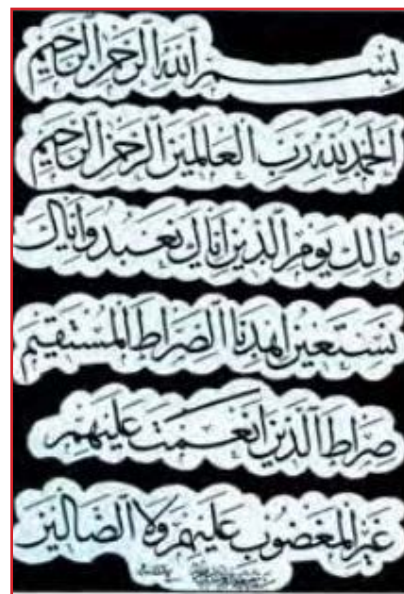 بِسْمِ اللهِ الرَّحْمٰنِ الرَّحِيْمِ
الحَمْدُ لِلّٰهِ رَبِّ العَالَمِيْنَ الرَّحْمٰنِ الرَّحِيْمِ
مَالِكِ يَوْمِ الدِّيْنِ اِيَّاكَ نَعْبُدُ وَاِيَّاكَ
نَسْتَعِيْنُ اِهْدِنَا الصِّرَاطَ الْمُسْتَقِيْمَ
صِرَاطَ الَّذِيْنَ اَنْعَمْتَ عَلَيْهِمْ
غَيْرِ الْمَغْضُوْبِ عَلَيْهِمْ وَلَا الضَّالِّيْنَ